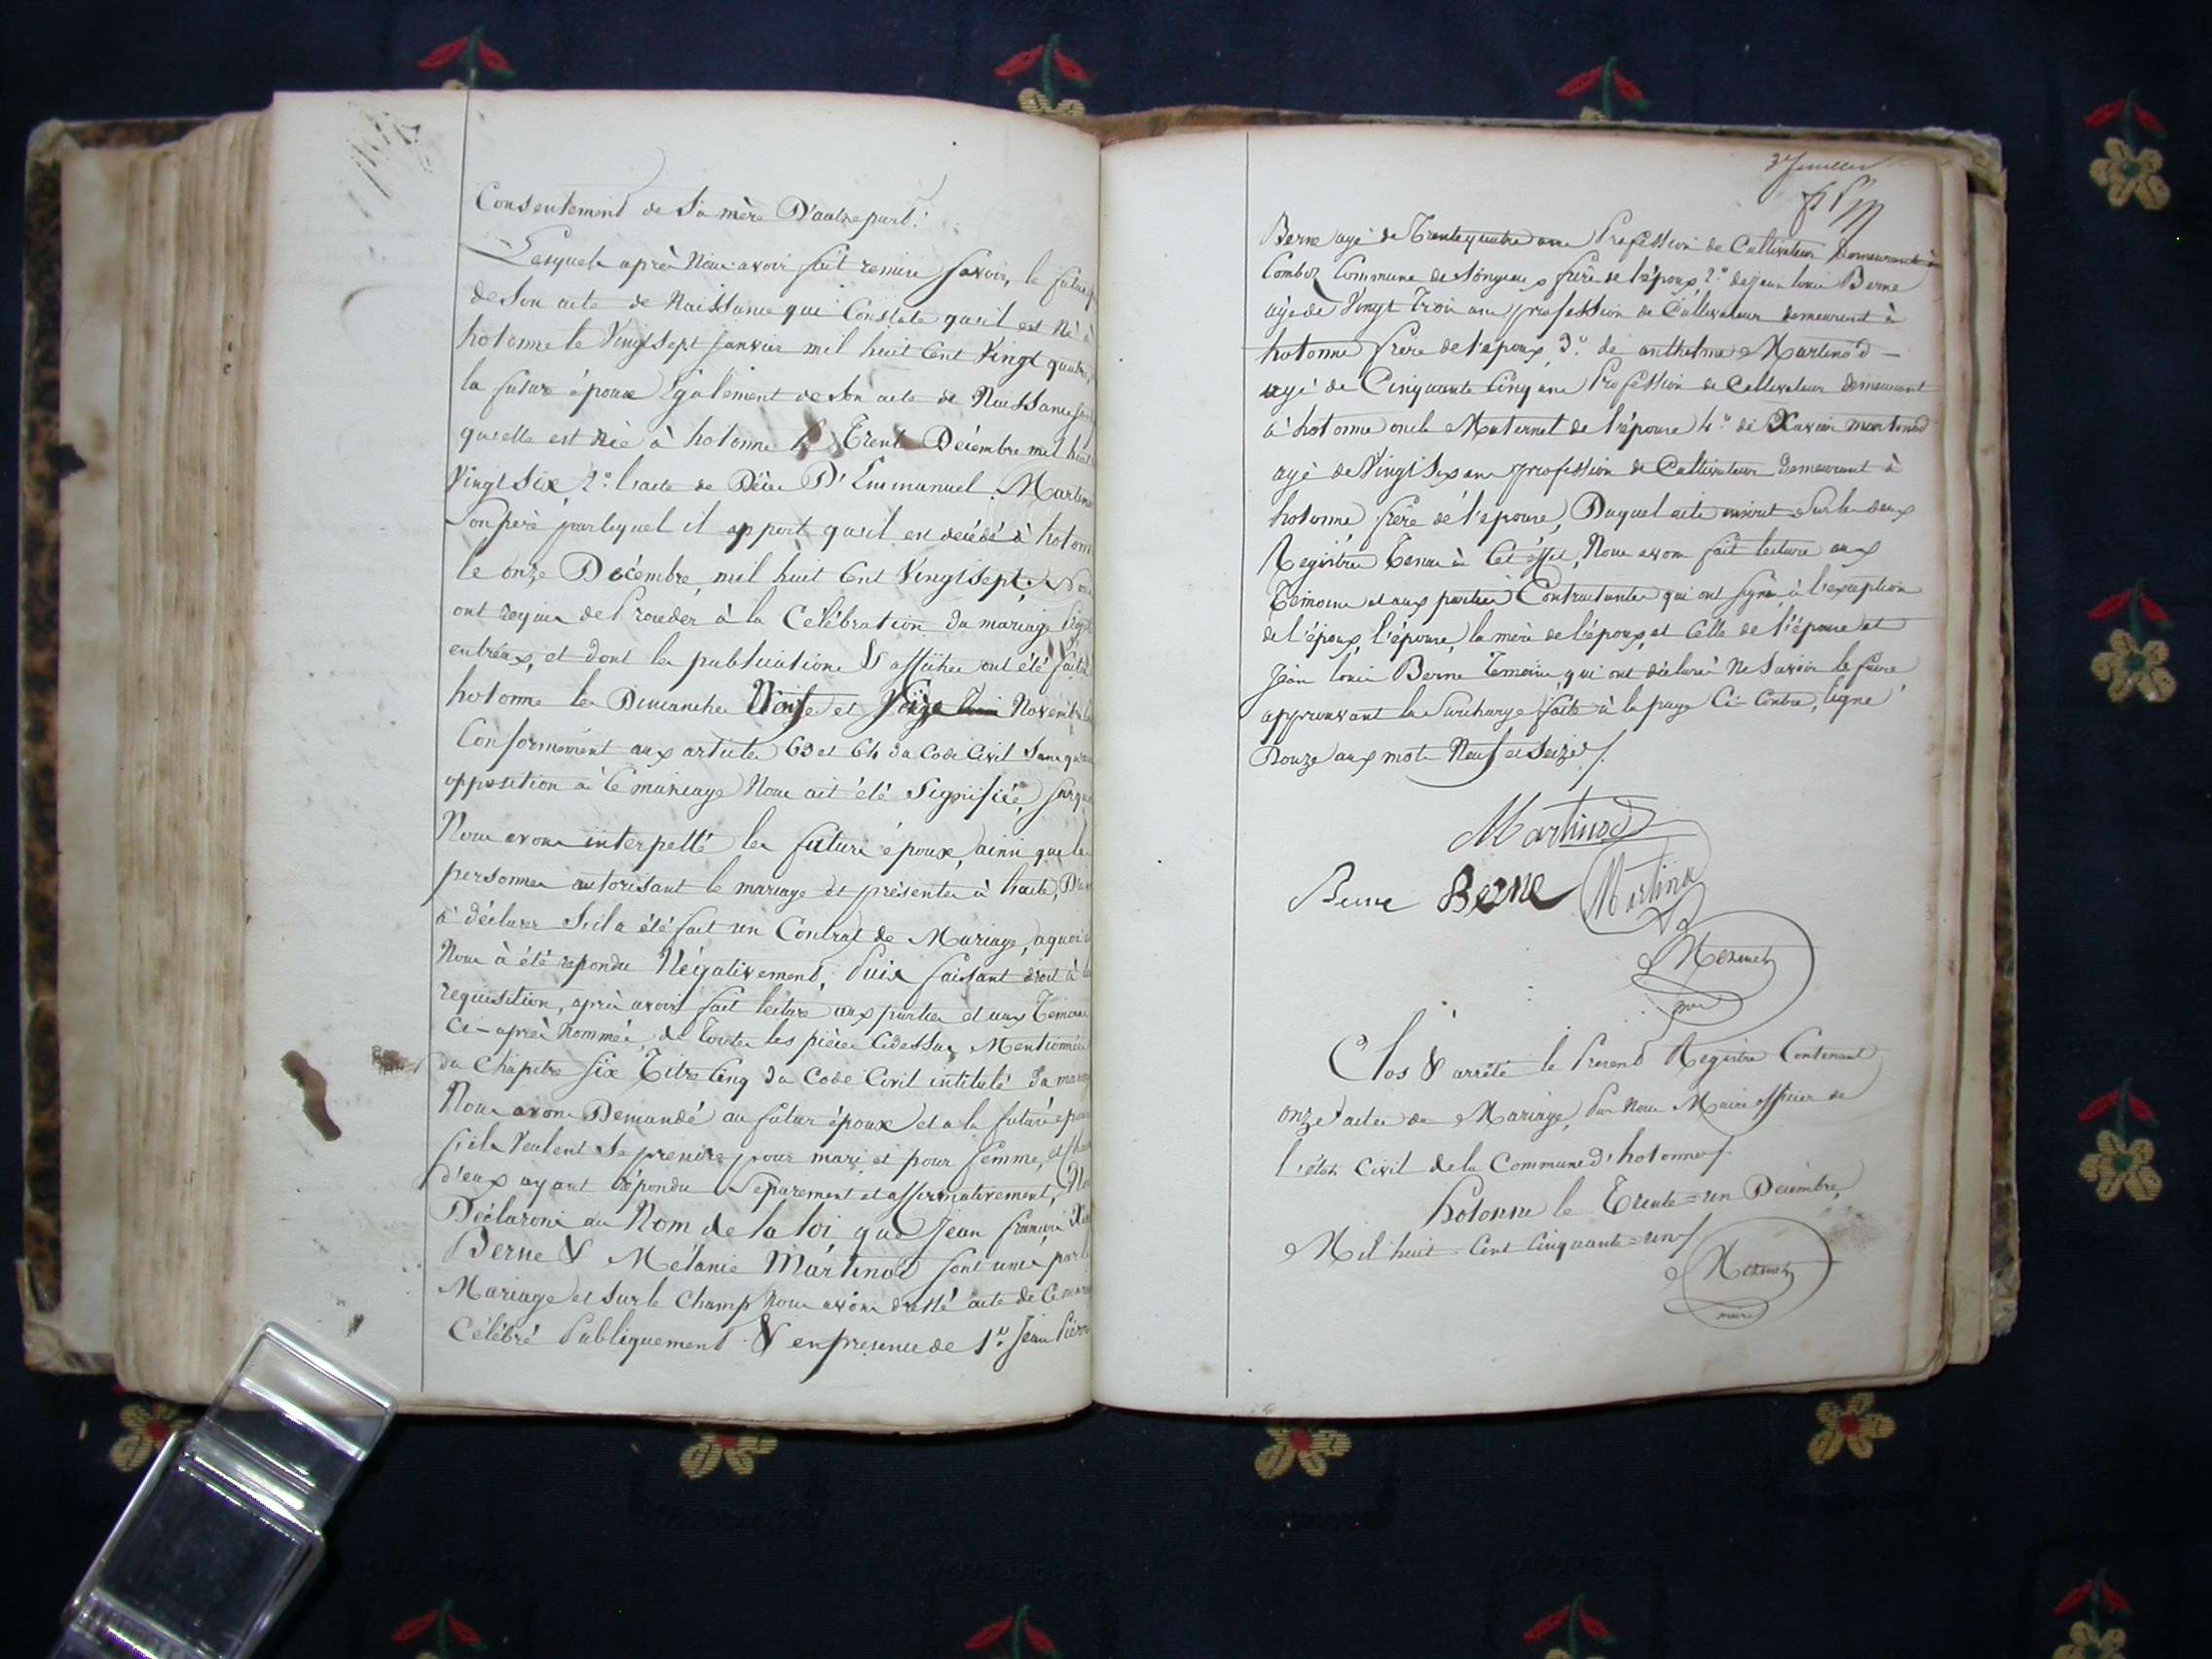 Consentement de Sa mère D'autre part.
Lesquels après Nous avoir fait remise Savoir, le futur
de Son acte de Naissance qui Constate qu'il est Né à
hotonne le Vingt sept Janvier mil huit Cent Vingt quatre,
la future épouse Egalement de Son acte de Naissance
qu'elle est Née à hotonne le Trente Décembre mil huit
Vingt Six, 2.º l'acte de Décès D'Emmanuel Martino
Son père par lequel il appert qu'il est décédé à hotonn
le onze Décembre mil huit Cent Vingt Sept. Nous
ont requis de Procéder à la Célébration du mariage
entr'eux, et dont les publications & affiches ont été faites
hotonne les Dimanches Neuf et Seize Novembre
Conformément aux articles 63 et 64 du Code Civil Sans qu'
opposition à ce mariage Nous ait été Signifiée,
Nous avons interpellé les futurs époux, ainsi que les
personnes autorisant le mariage et présentes à l'acte,
à déclarer S'il a été fait un Contrat de Mariage, a quoi il
Nous à été répondu Négativement, Puis faisant droit à
requisition, après avoir fait lecture aux parties et aux Témoins
Ci-après nommés, de toutes les pièces Cidessus Mentionnées
du Chapitre Six Titre Cinq du Code Civil intitulé du mariag
Nous avons Demandé au futur époux et a la future épou
S'ils Veulent Se prendre pour mari et pour femme, et
d'eux ayant répondu Séparement et affirmativement, No
Déclarons au Nom de la loi que Jean françois
Berne & Mélanie Martinod Sont unis par le
Mariage et sur le Champ Nous avons dressé acte de Ce
Célébré Publiquement & en présence de 1.º Jean Pierre
3e feuillet
Berne agé de Trente quatre ans Profession de Cultivateur Demeurant à
Commune de Songieu frère de l'époux, 2.º de Jean louis Berne
agé de Vingt Trois ans profession de Cultivateur demeurant à
hotonne frère de l'époux, 3.º de anthelme Martinod -
agé de Cinquante Cinq ans Profession de Cultivateur demeurant
à hotonne oncle Maternel de l'épouse 4.º de Xavier martinod
agé de Vingt Six ans profession de Cultivateur Demeurant à
hotonne frère de l'épouse, Duquel acte inscrit Sur les deux
Registres Tenus à Cet effet, Nous avons fait lecture aux
Témoins et aux parties Contractantes qui ont Signé à l'exception
de l'époux, l'épouse, la mère de l'époux et Celle de l'épouse et
Jean louis Berne Témoin, qui ont déclaré Ne Savoir le faire
approuvant la Surcharge faite à la page Ci-Contre, ligne
Douze aux mots Neuf et Seize/.
Martinod
Berne Berne Martinod
maire
Clos & arrêté le Présent Registre Contenant
onze actes de Mariage, Par Nous Maire officier de
l'état Civil de la Commune d'hotonnes/.
hotonne le Trente=un Décembre,
Mil huit=Cent Cinquante=un/
maire